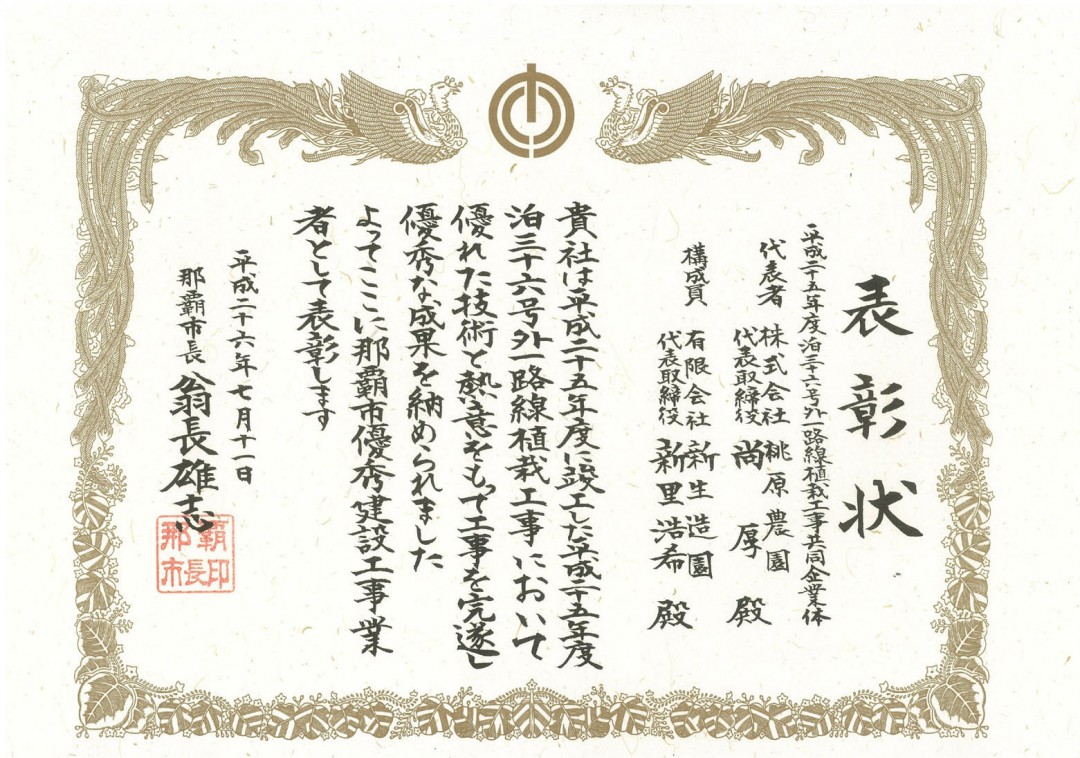 表彰状
平成二十五年度泊三十六号外一路線植栽工事共同企業体
代表者 株式会社 桃原農園
代表取締役 尚 厚 殿
構成員 有限会社 新生造園
代表取締役 新里浩希 殿
貴社は平成二十五年度に竣工した平成二十五年度
泊三十六号外一路線植栽工事において
優れた技術と熱意をもって工事を完遂し
優秀な成果を納められました
よってここに那覇市優秀建設工事業
者として表彰します
平成二十六年七月十一日
那覇市長 翁長雄志
那覇市長印